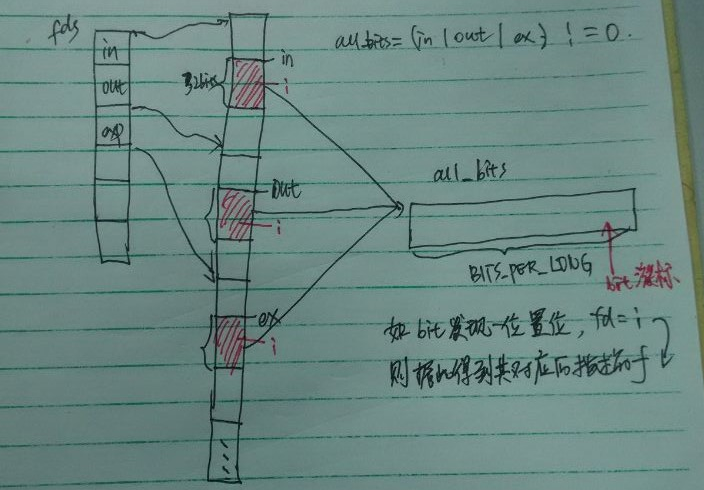 fds
in
out
exp
32bits
in
i
out
i
ex
i
all_bits = (in | out | ex) != 0.
all_bits
BITS_PER_LONG
bit 游标
如 bit 发现一位置位, fd = i
则据此得到其对应后描述的 f